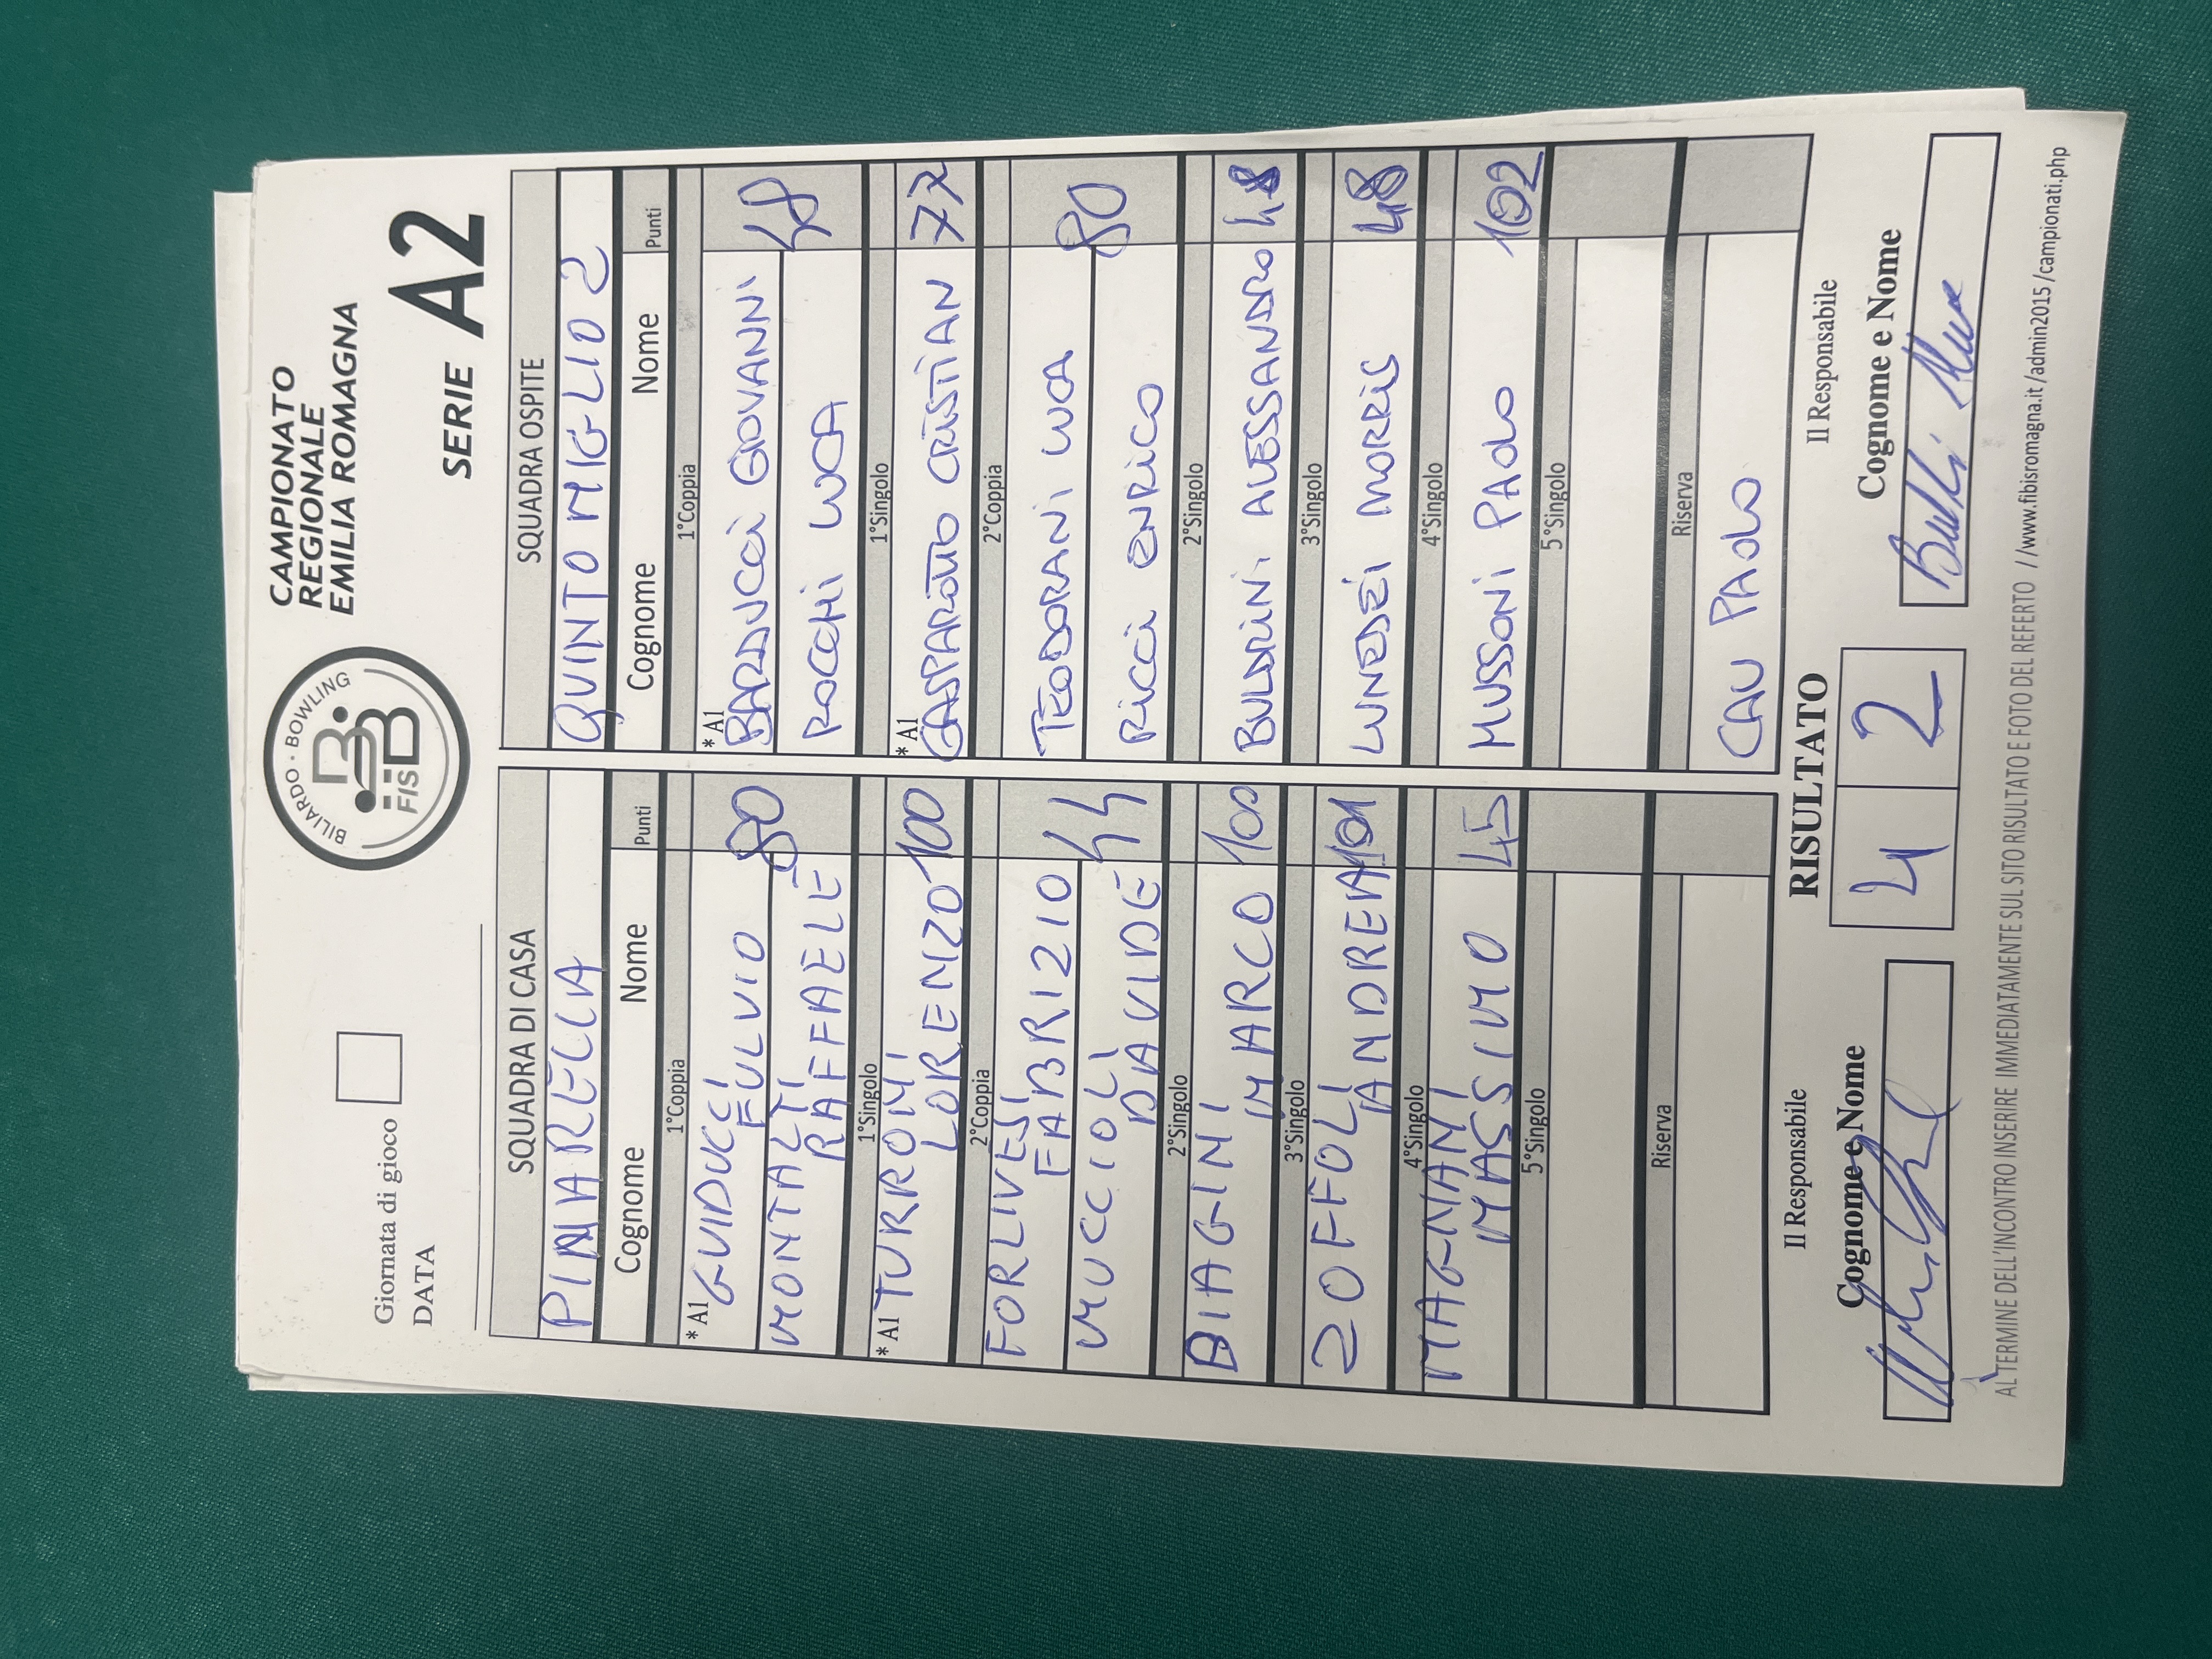 Giornata di gioco
DATA
BILIARDO · BOWLING
FISBB
CAMPIONATO
REGIONALE
EMILIA ROMAGNA
SERIE A2
SQUADRA DI CASA
PINARELLA
Cognome Nome Punti
1°Coppia
* A1 GUIDUCCI FULVIO 80
MONTALTI RAFFAELE
1°Singolo
* A1 TURRONI LORENZO 100
2°Coppia
FORLIVESI FABRIZIO 44
MUCCIOLI DAVIDE
2°Singolo
BIAGINI MARCO 100
3°Singolo
ZOFFOLI ANDREA 101
4°Singolo
MAGNANI MASSIMO 45
5°Singolo
Riserva
SQUADRA OSPITE
QUINTO MIGLIO 2
Cognome Nome Punti
1°Coppia
* A1 BARDUCCI GIOVANNI 48
ROCCHI LUCA
1°Singolo
* A1 GASPAROTTO CRISTIAN 77
2°Coppia
TEODORANI LUCA 80
RICCI ENRICO
2°Singolo
BULDRINI ALESSANDRO 48
3°Singolo
LUNEDEI MORRIS 48
4°Singolo
MUSSONI PAOLO 102
5°Singolo
Riserva
CAU PAOLO
Il Responsabile
Cognome e Nome
RISULTATO
4 2
Il Responsabile
Cognome e Nome
AL TERMINE DELL'INCONTRO INSERIRE IMMEDIATAMENTE SUL SITO RISULTATO E FOTO DEL REFERTO //www.fibisromagna.it/admin2015/campionati.php